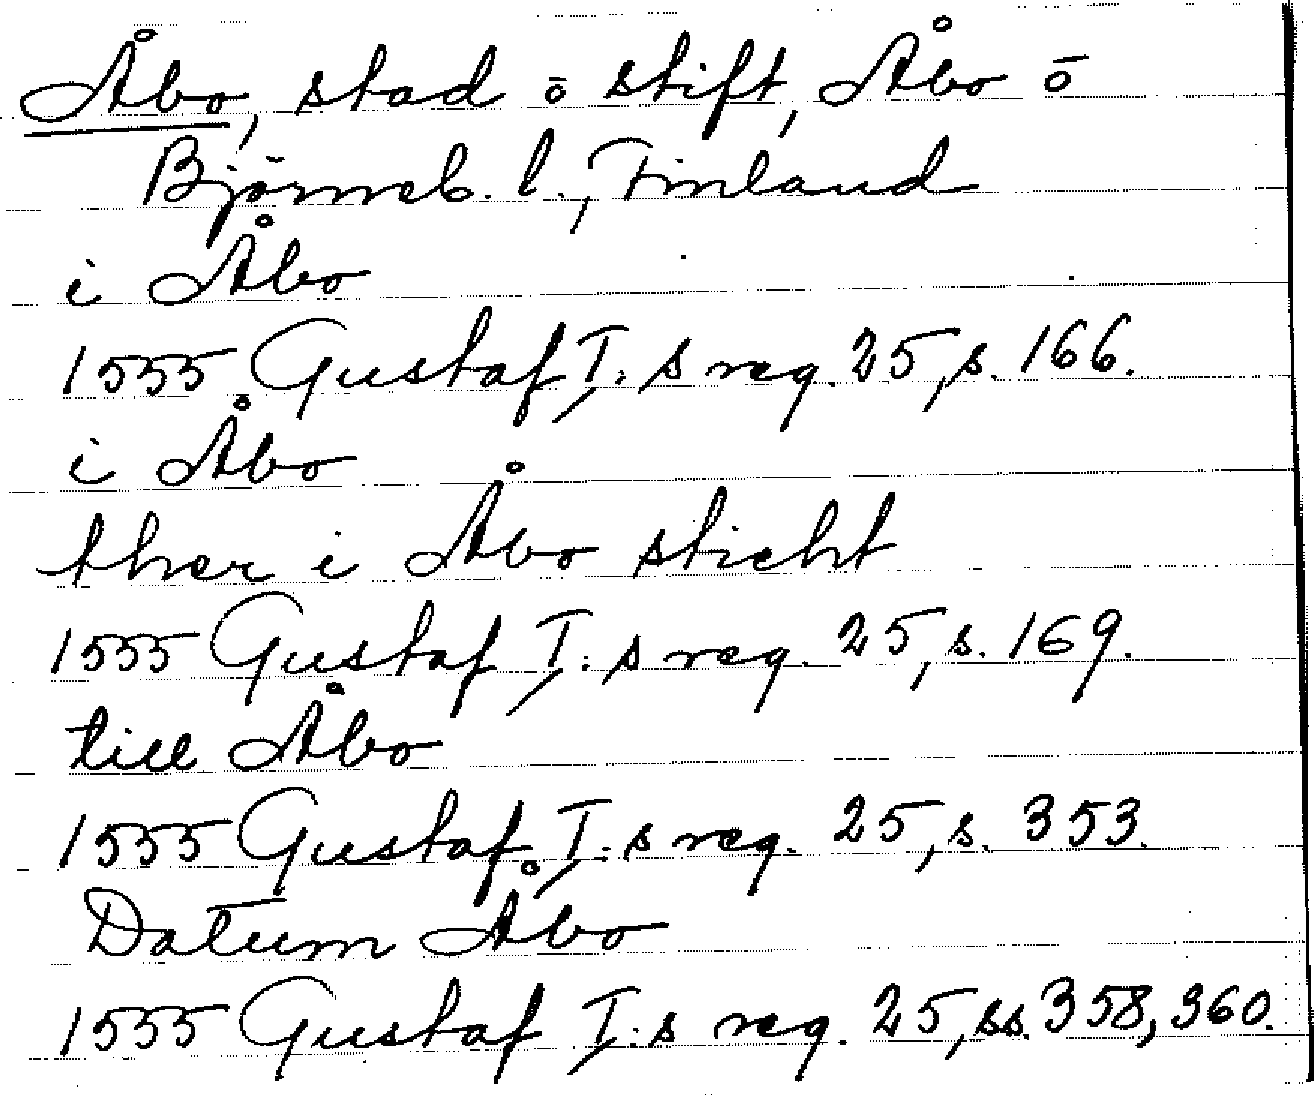 Åbo, stad ō stift, Åbo ō
Björneb. l., Finland
i Åbo
1555 Gustaf I:s reg. 25, s. 166.
i Åbo
ther i Åbo sticht
1555 Gustaf I:s reg. 25, s. 169.
till Åbo
1555 Gustaf I:s reg. 25, s. 353.
Datum Åbo
1555 Gustaf I:s reg. 25, ss. 358, 360.